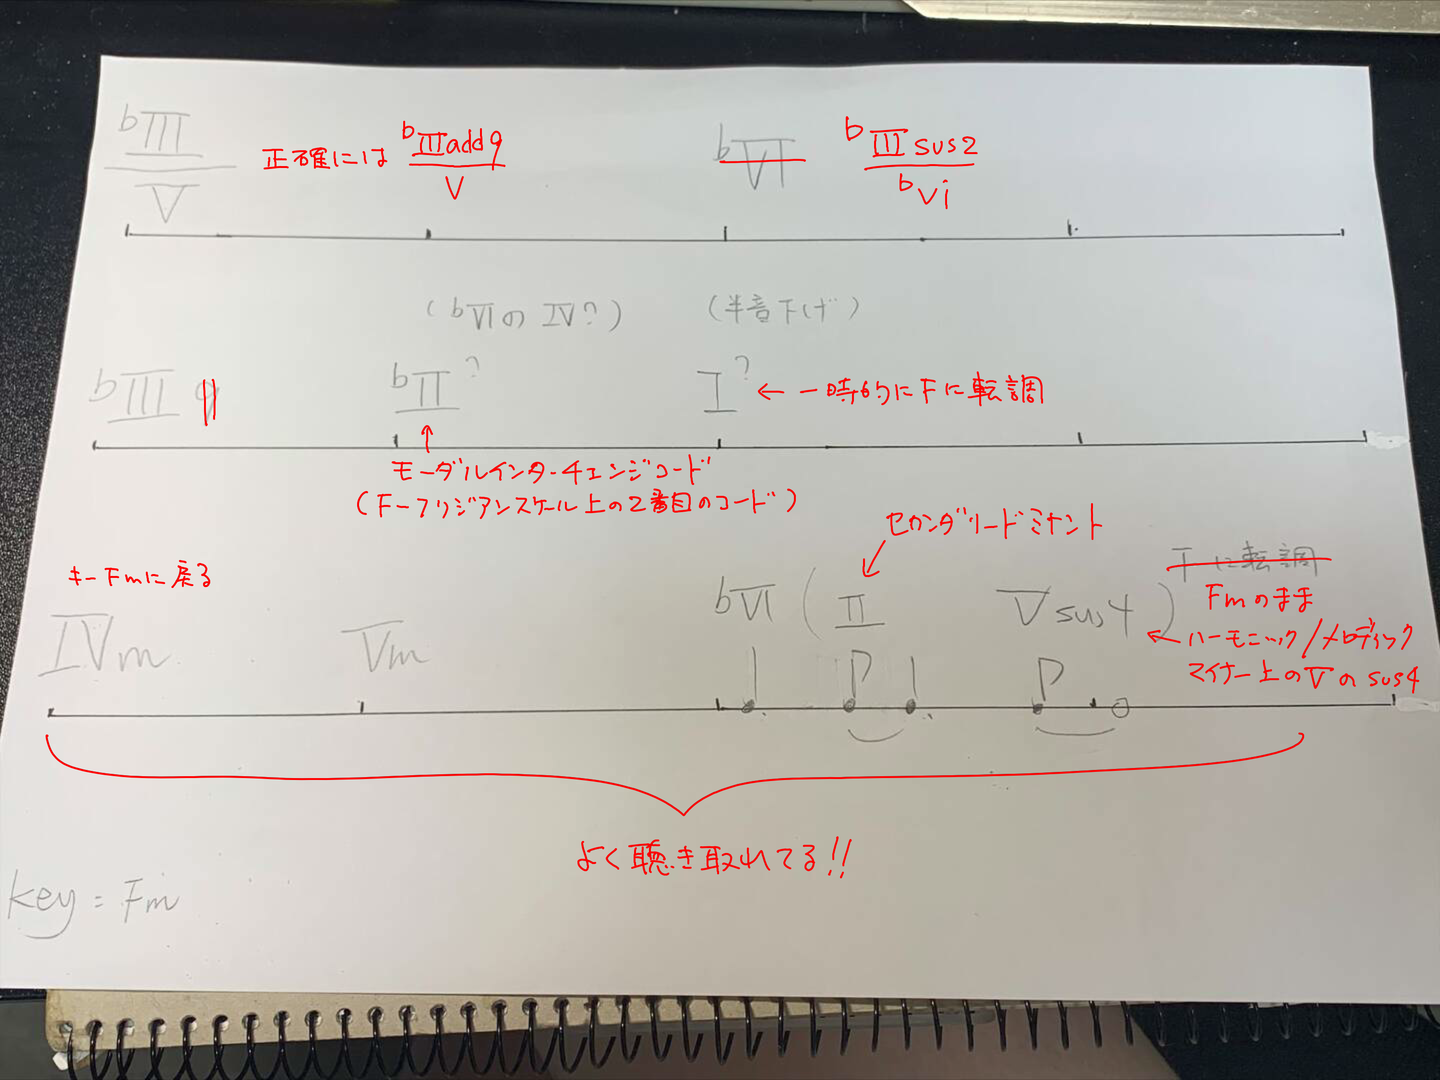 bIII/V 正確には bIIIadd9/V bVI bIIIsus2/bVi
(bVIの IV?) (半音下げ)
bIII bII? I? ← 一時的にFに転調
↑
モーダルインターチェンジコード
(Fーフリジアンスケール上の2番目のコード)
セカンダリードミナント
キーFmに戻る
Fに転調
IVm Vm bVI (II Vsus4) Fmのまま
←ハーモニック/メロディック
マイナー上のVのsus4
よく聴き取れてる!!
key = Fm